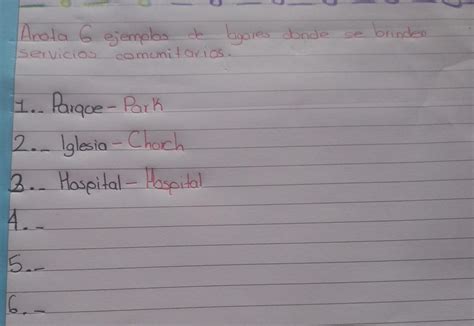 Anota 6 ejemplos de lugares donde se brinden
servicios comunitarios.
1.. Parque - Park
2.- Iglesia - Church
3.. Hospital - Hospital
4.-
5.-
6.-